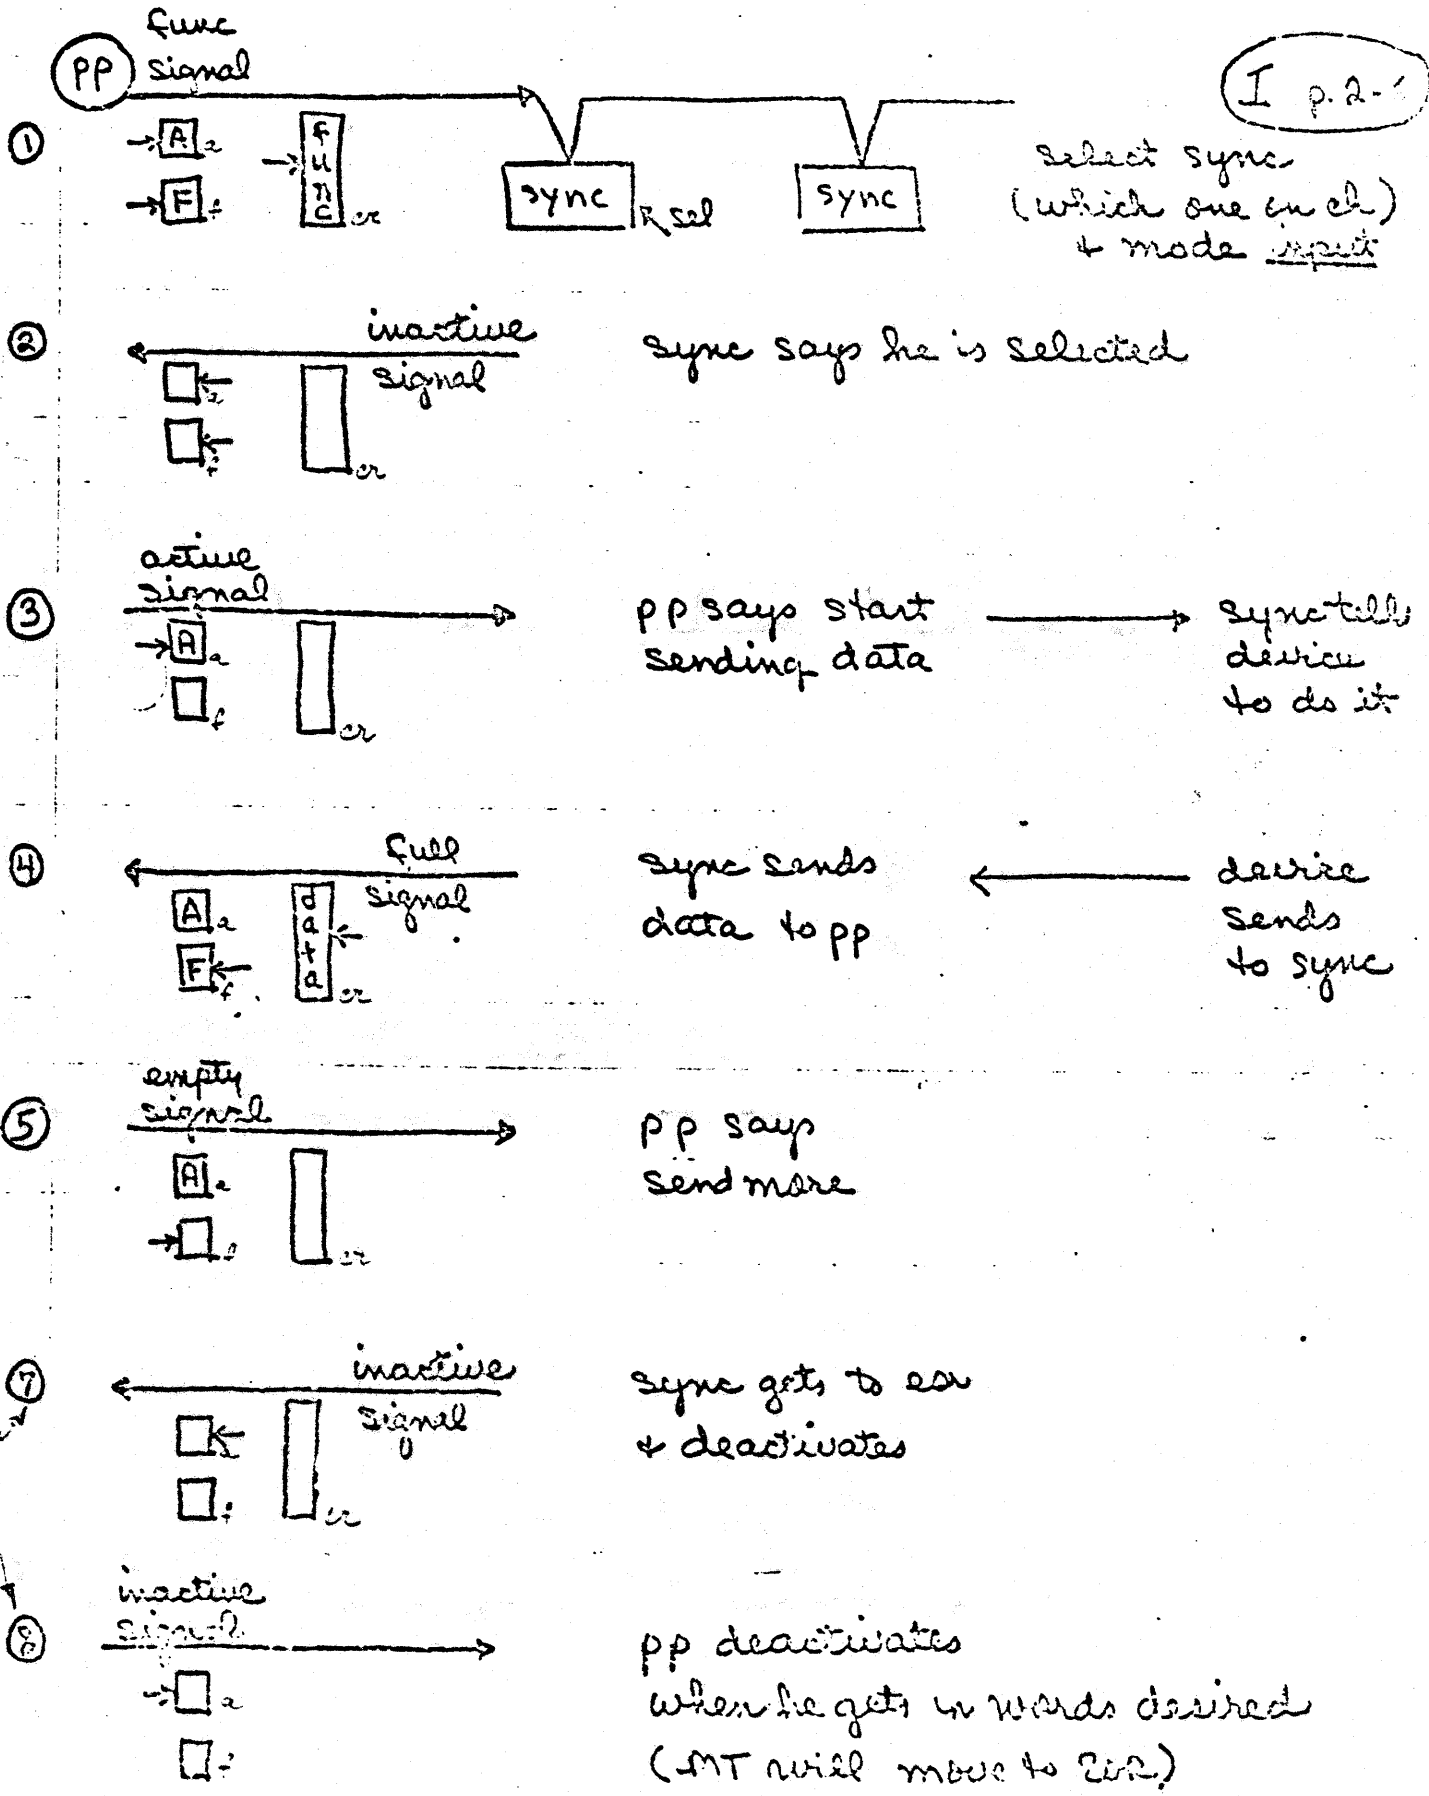 func
pp signal
I p. 2-
① A a
F f
func cr
sync sel
sync
select sync
(which one on ch)
+ mode input
② inactive
signal
a
f
cr
sync says he is selected
③ active
signal
A a
f
cr
pp says start
sending data
sync tells
device
to do it
④ full
signal
A a
F f
data cr
sync sends
data to pp
device
sends
to sync
⑤ empty
signal
A a
f
cr
pp says
send more
⑦ inactive
signal
a
f
cr
sync gets to eor
+ deactivates
⑧ inactive
signal
a
f
pp deactivates
when he gets in words desired
(MT will move to EOR)